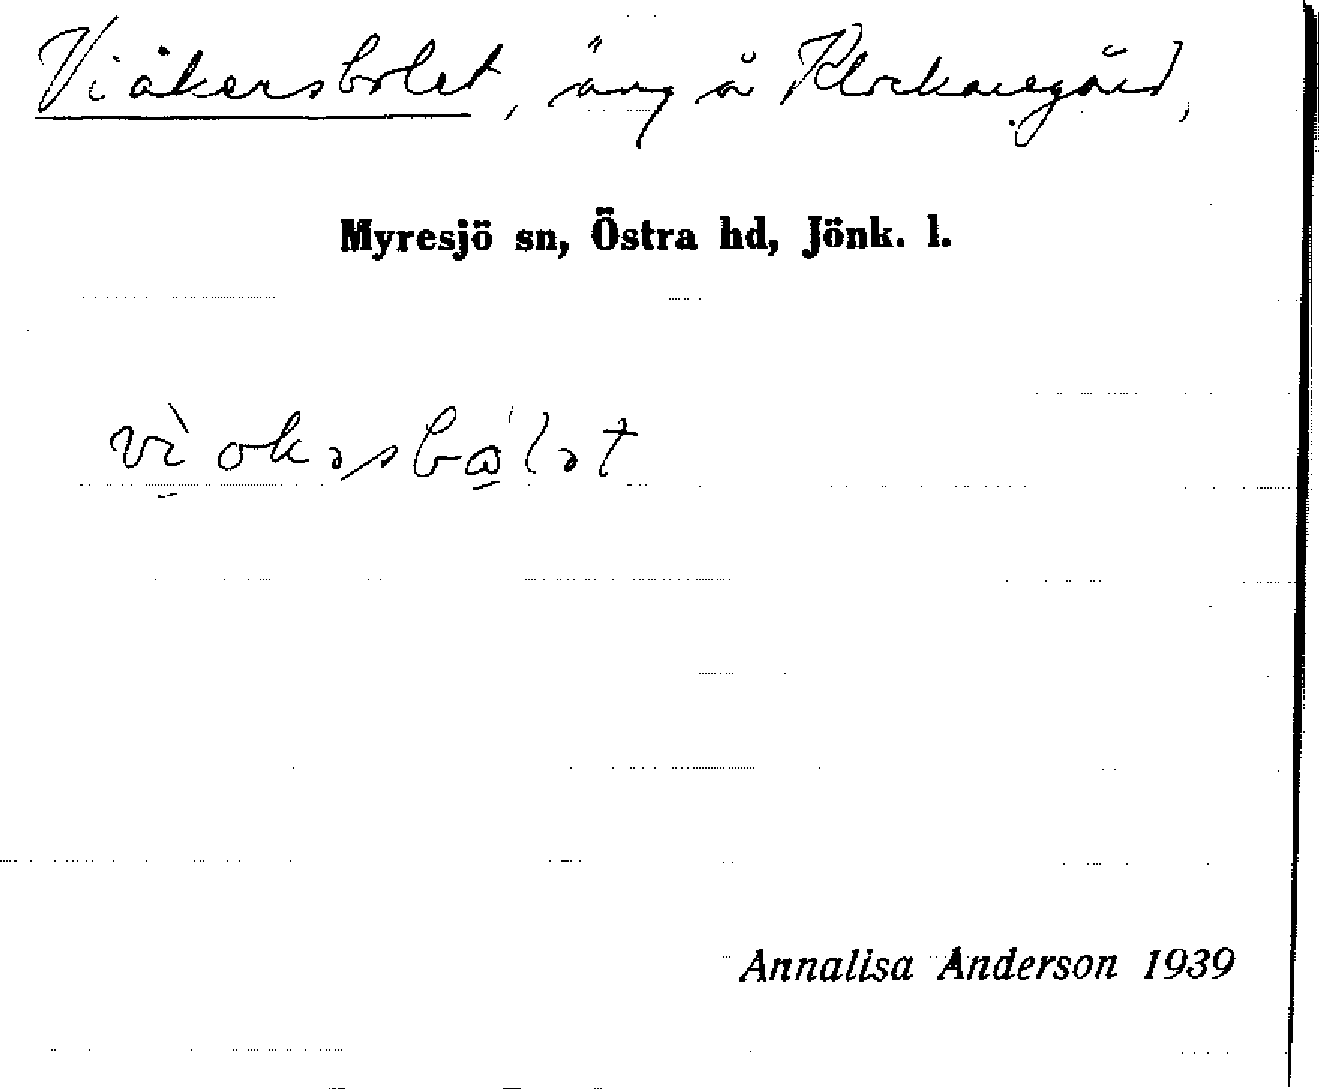 Viåkersbolet, äng å Klockaregård,
Myresjö sn, Östra hd, Jönk. l.
vìokəsbǻlət
Annalisa Anderson 1939